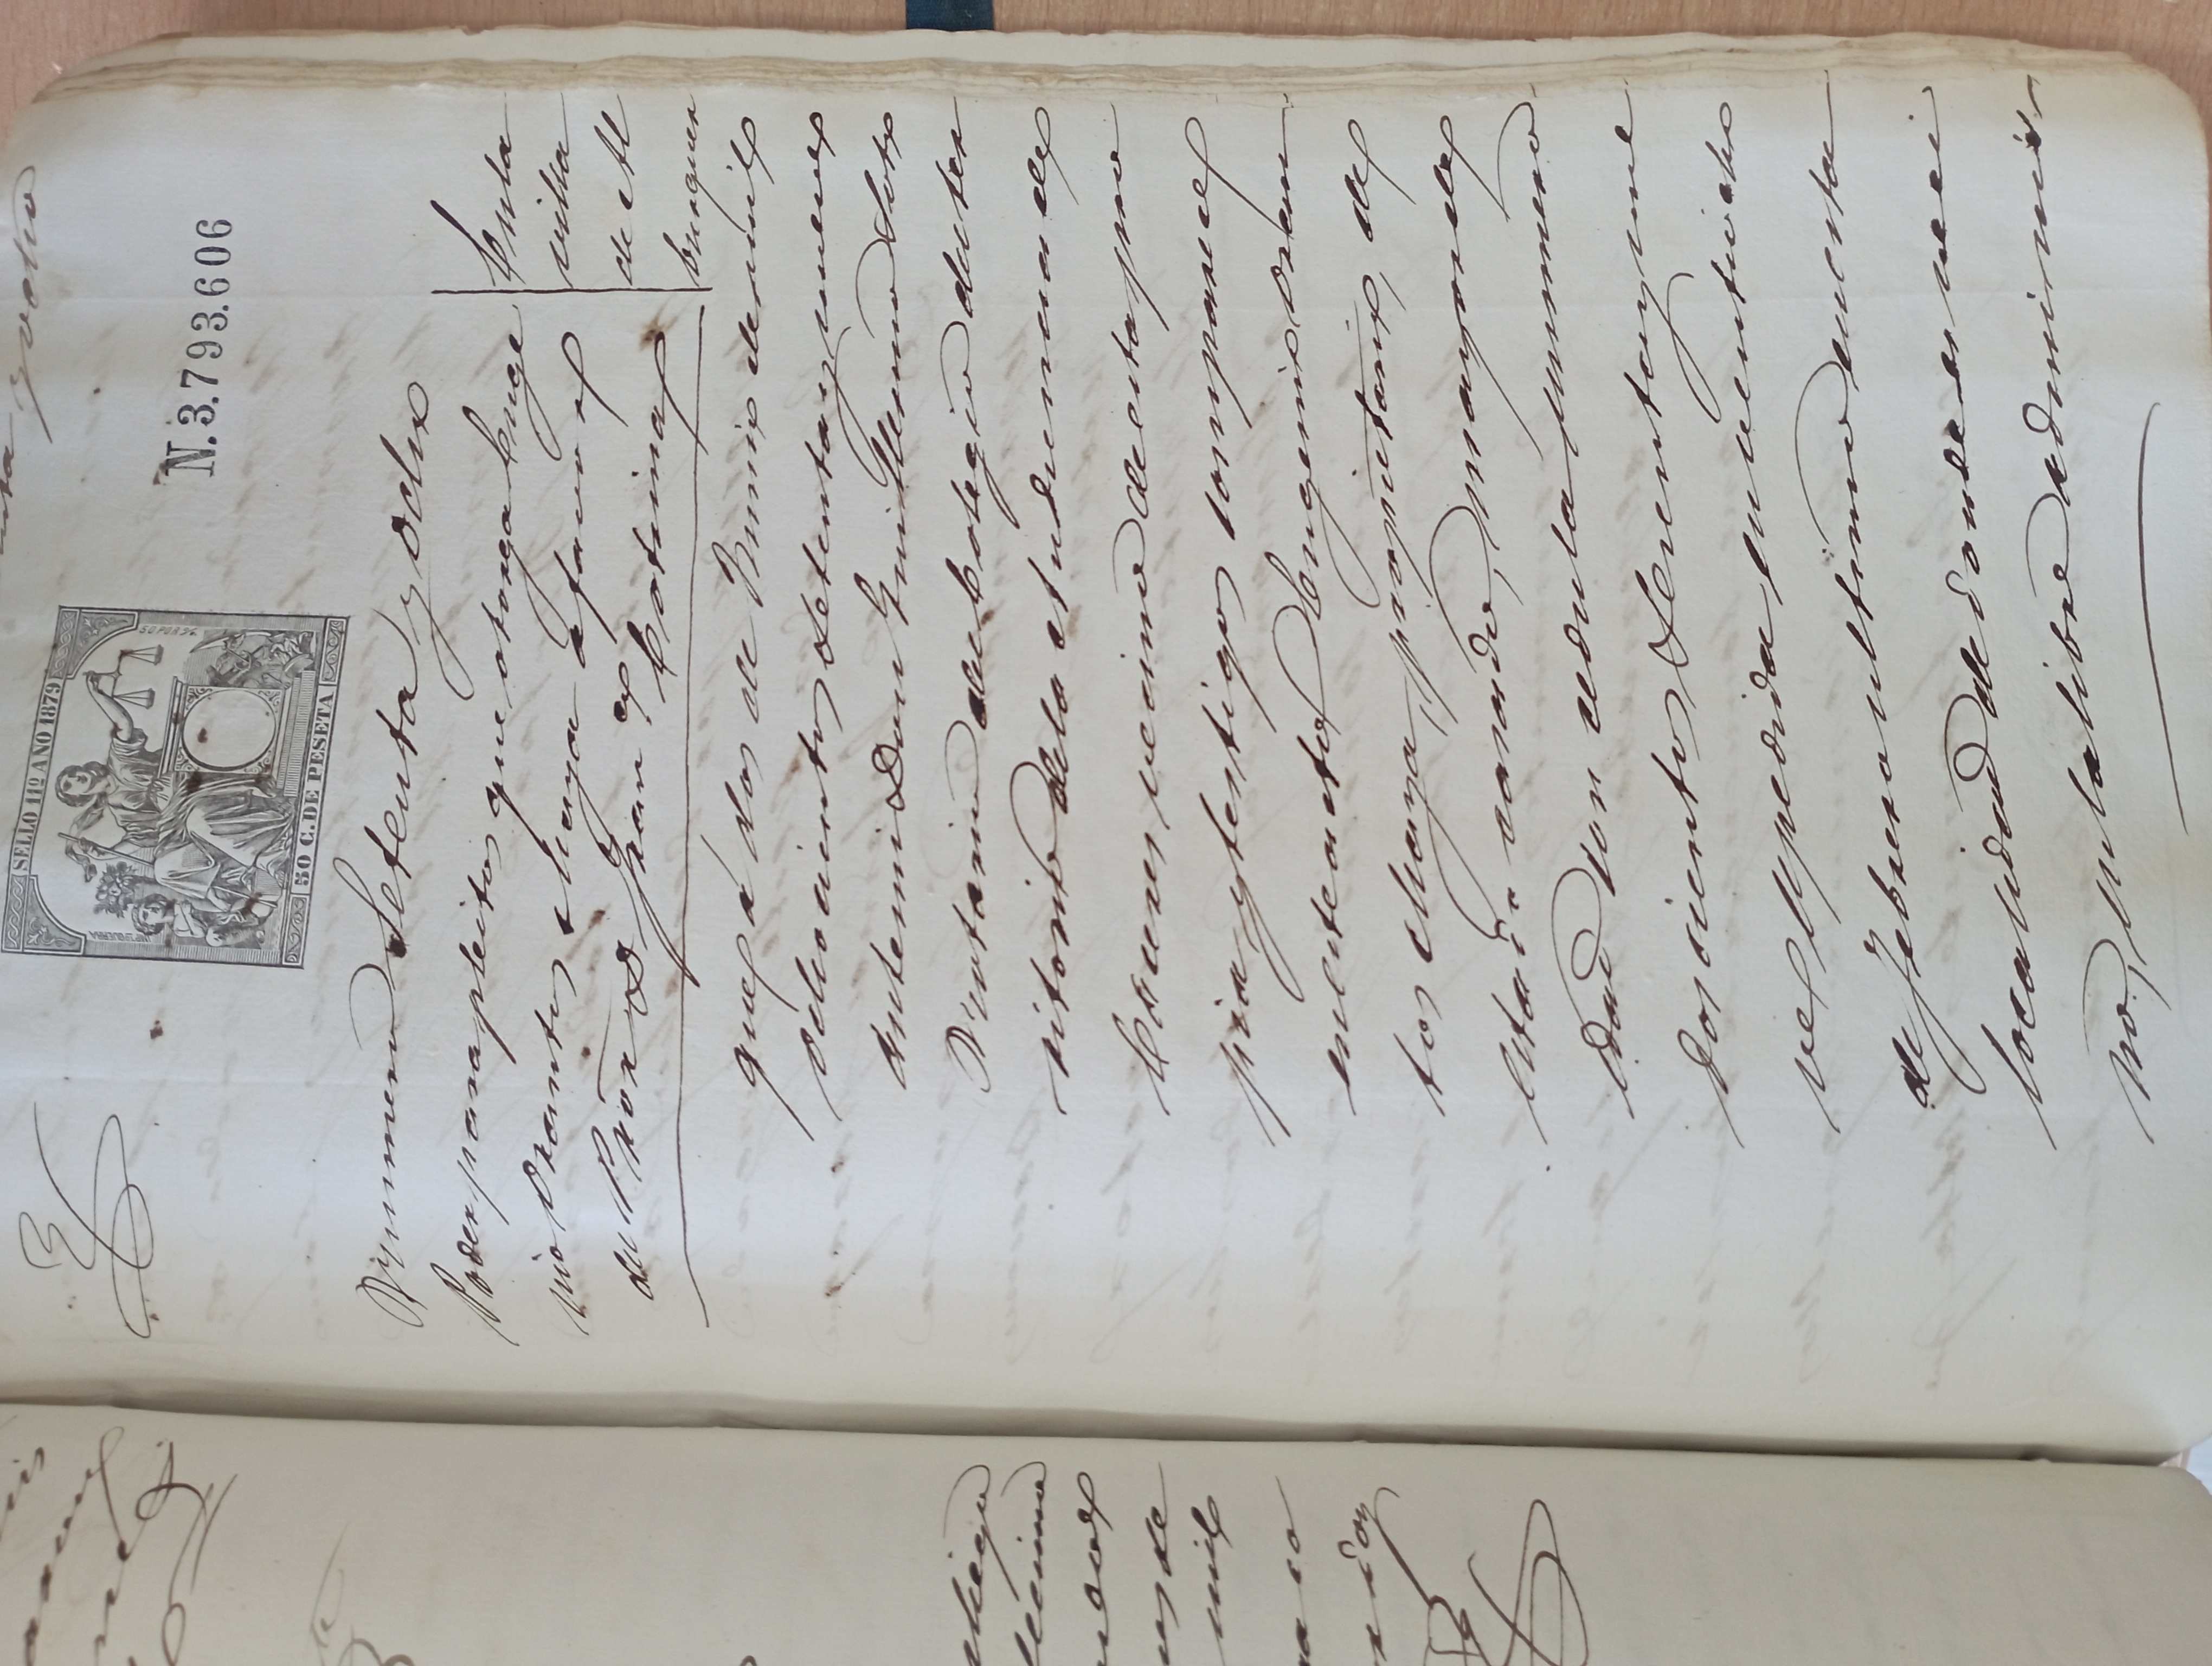 y ocho
SELLO 11º AÑO 1879
N.3.793.606
50 C. DE PESETA
Numero Setenta y ocho
Poder para pleitos que otorga Euge
nio Orantos Maya a favor
del Prōr D Franco Cotrina
En la
villa
de Al
burquer
que á dos de Junio de mil
ochocientos setenta y nueve
ante mi Don Guillermo Soto
Notario del Colegio del ter
ritorio de la Audiencia de
Cáceres vecino de esta pro
pia y testigos comparece
en este acto Eugenio Oran
tos Maya, propietario, de
estado casado, mayor de
edad con cedula numero
doscientos sesenta y nue
ve espedida en ventiocho
de Febrero ultimo en esta
localidad de donde es veci
no, en la libre adminis-
llego
mil